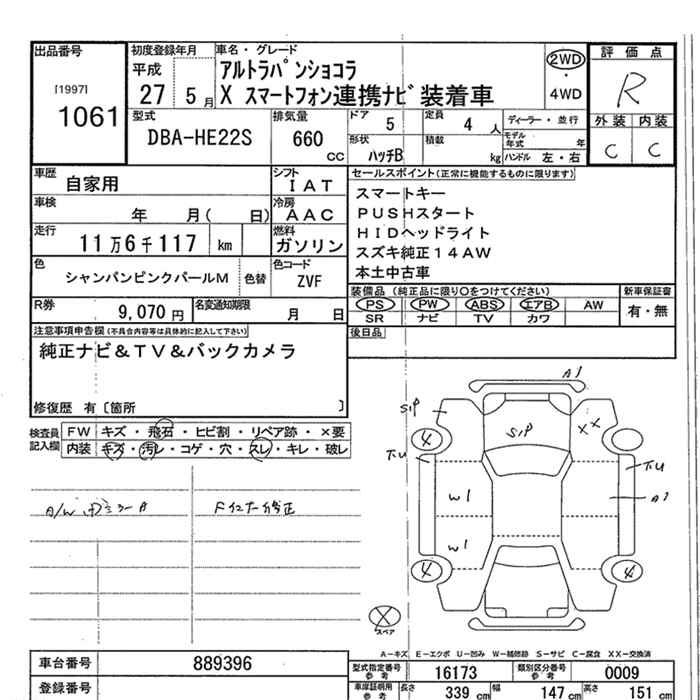 出品番号 初度登録年月 車名・グレード 評価点
[1997] 1061 平成 27 5月 アルトラパンショコラ
X スマートフォン連携ナビ装着車 2WD・4WD R
型式 排気量 ドア 5 定員 4人 ディーラー・並行 外装 内装
DBA-HE22S 660cc 形状 ハッチB 積載 kg モデル年式 年 ハンドル 左・右 C C
車歴 自家用 シフト IAT セールスポイント(正常に機能するものに限ります)
車検 年 月( 日) 冷房 AAC スマートキー
PUSHスタート
走行 11万6千117 km 燃料 ガソリン HIDヘッドライト
スズキ純正14AW
色 シャンパンピンクパールM 色替 色コード ZVF 本土中古車
装備品 (純正品に限り○をつけてください) 新車保証書
R券 9,070円 名変通知期限 月 日 PS PW ABS エアB AW 有・無
SR ナビ TV カワ
注意事項申告欄(不具合内容等は具体的に記入して下さい) 後日品
純正ナビ&TV&バックカメラ
修復歴 有〔箇所 〕
検査員記入欄 FW キズ・飛石・ヒビ割・リペア跡・×要
内装 キズ・汚レ・コゲ・穴・スレ・キレ・破レ
A1
S1P S1P XX
4
W1 A1
W1
4 4
スペア
A-キズ E-エクボ U-凹み W-補修跡 S-サビ C-腐食 XX-交換済
車台番号 889396 型式指定番号 参考 16173 類別区分番号 参考 0009
登録番号 車庫証明用 参考 長さ 339cm 幅 147cm 高さ 151cm